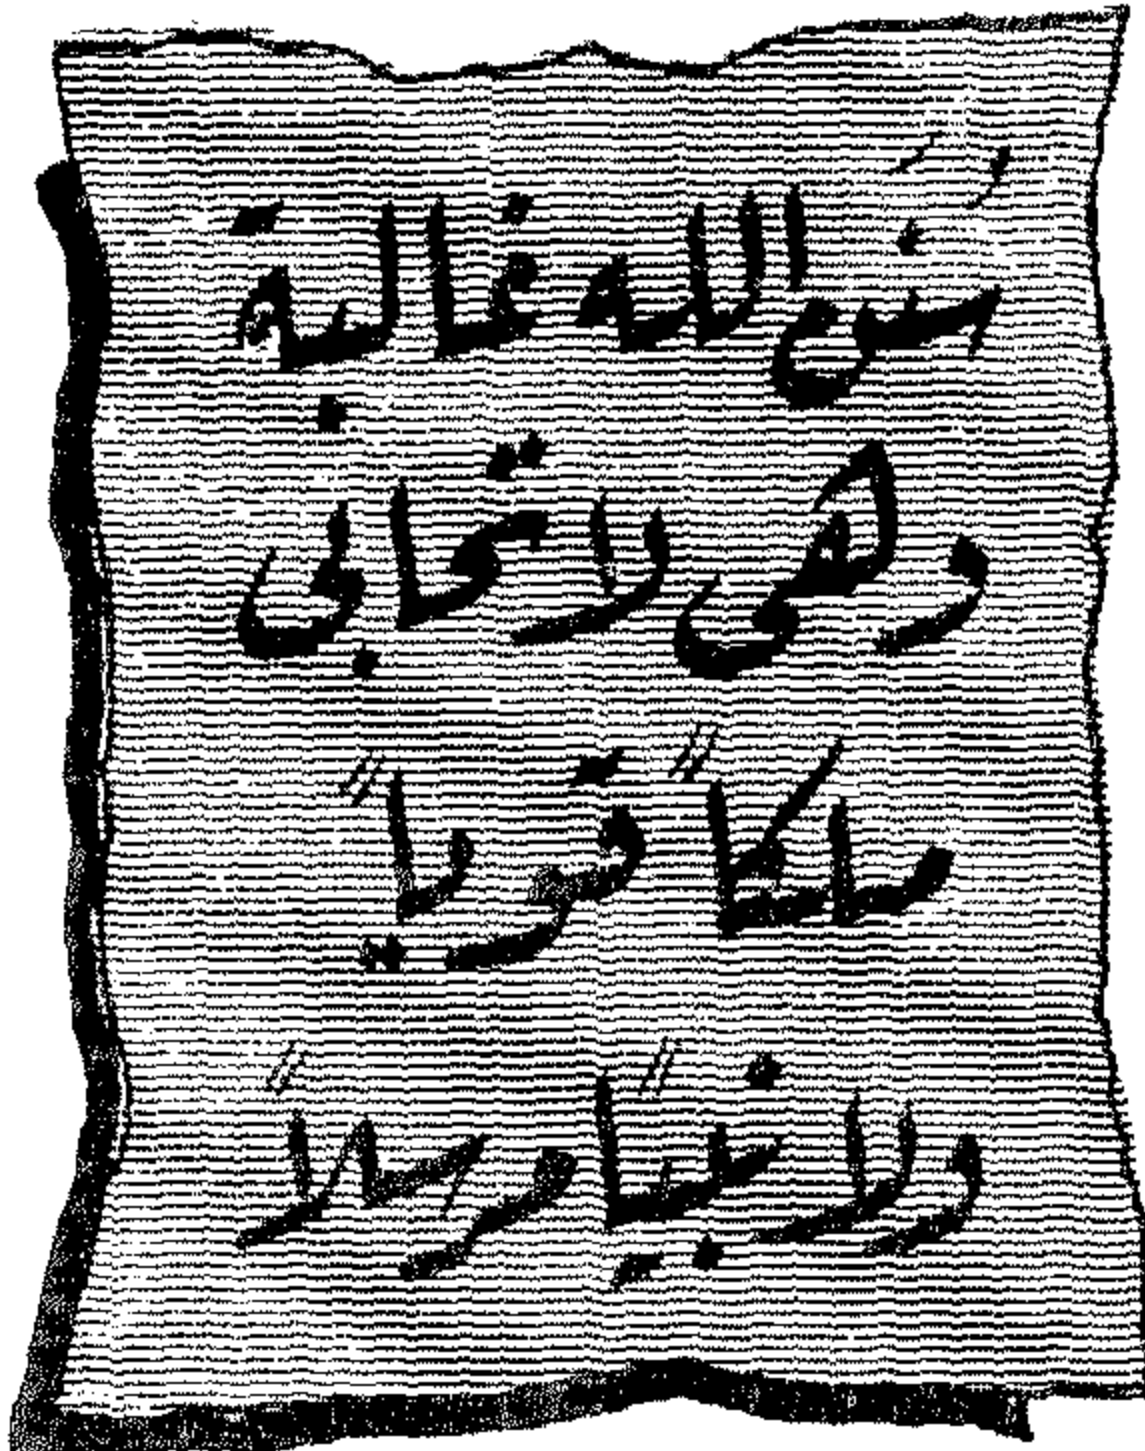 سُنَن الله غالبة
وهي لا تحابى
ملكاً قوياً
ولا نبياً مرسلاً